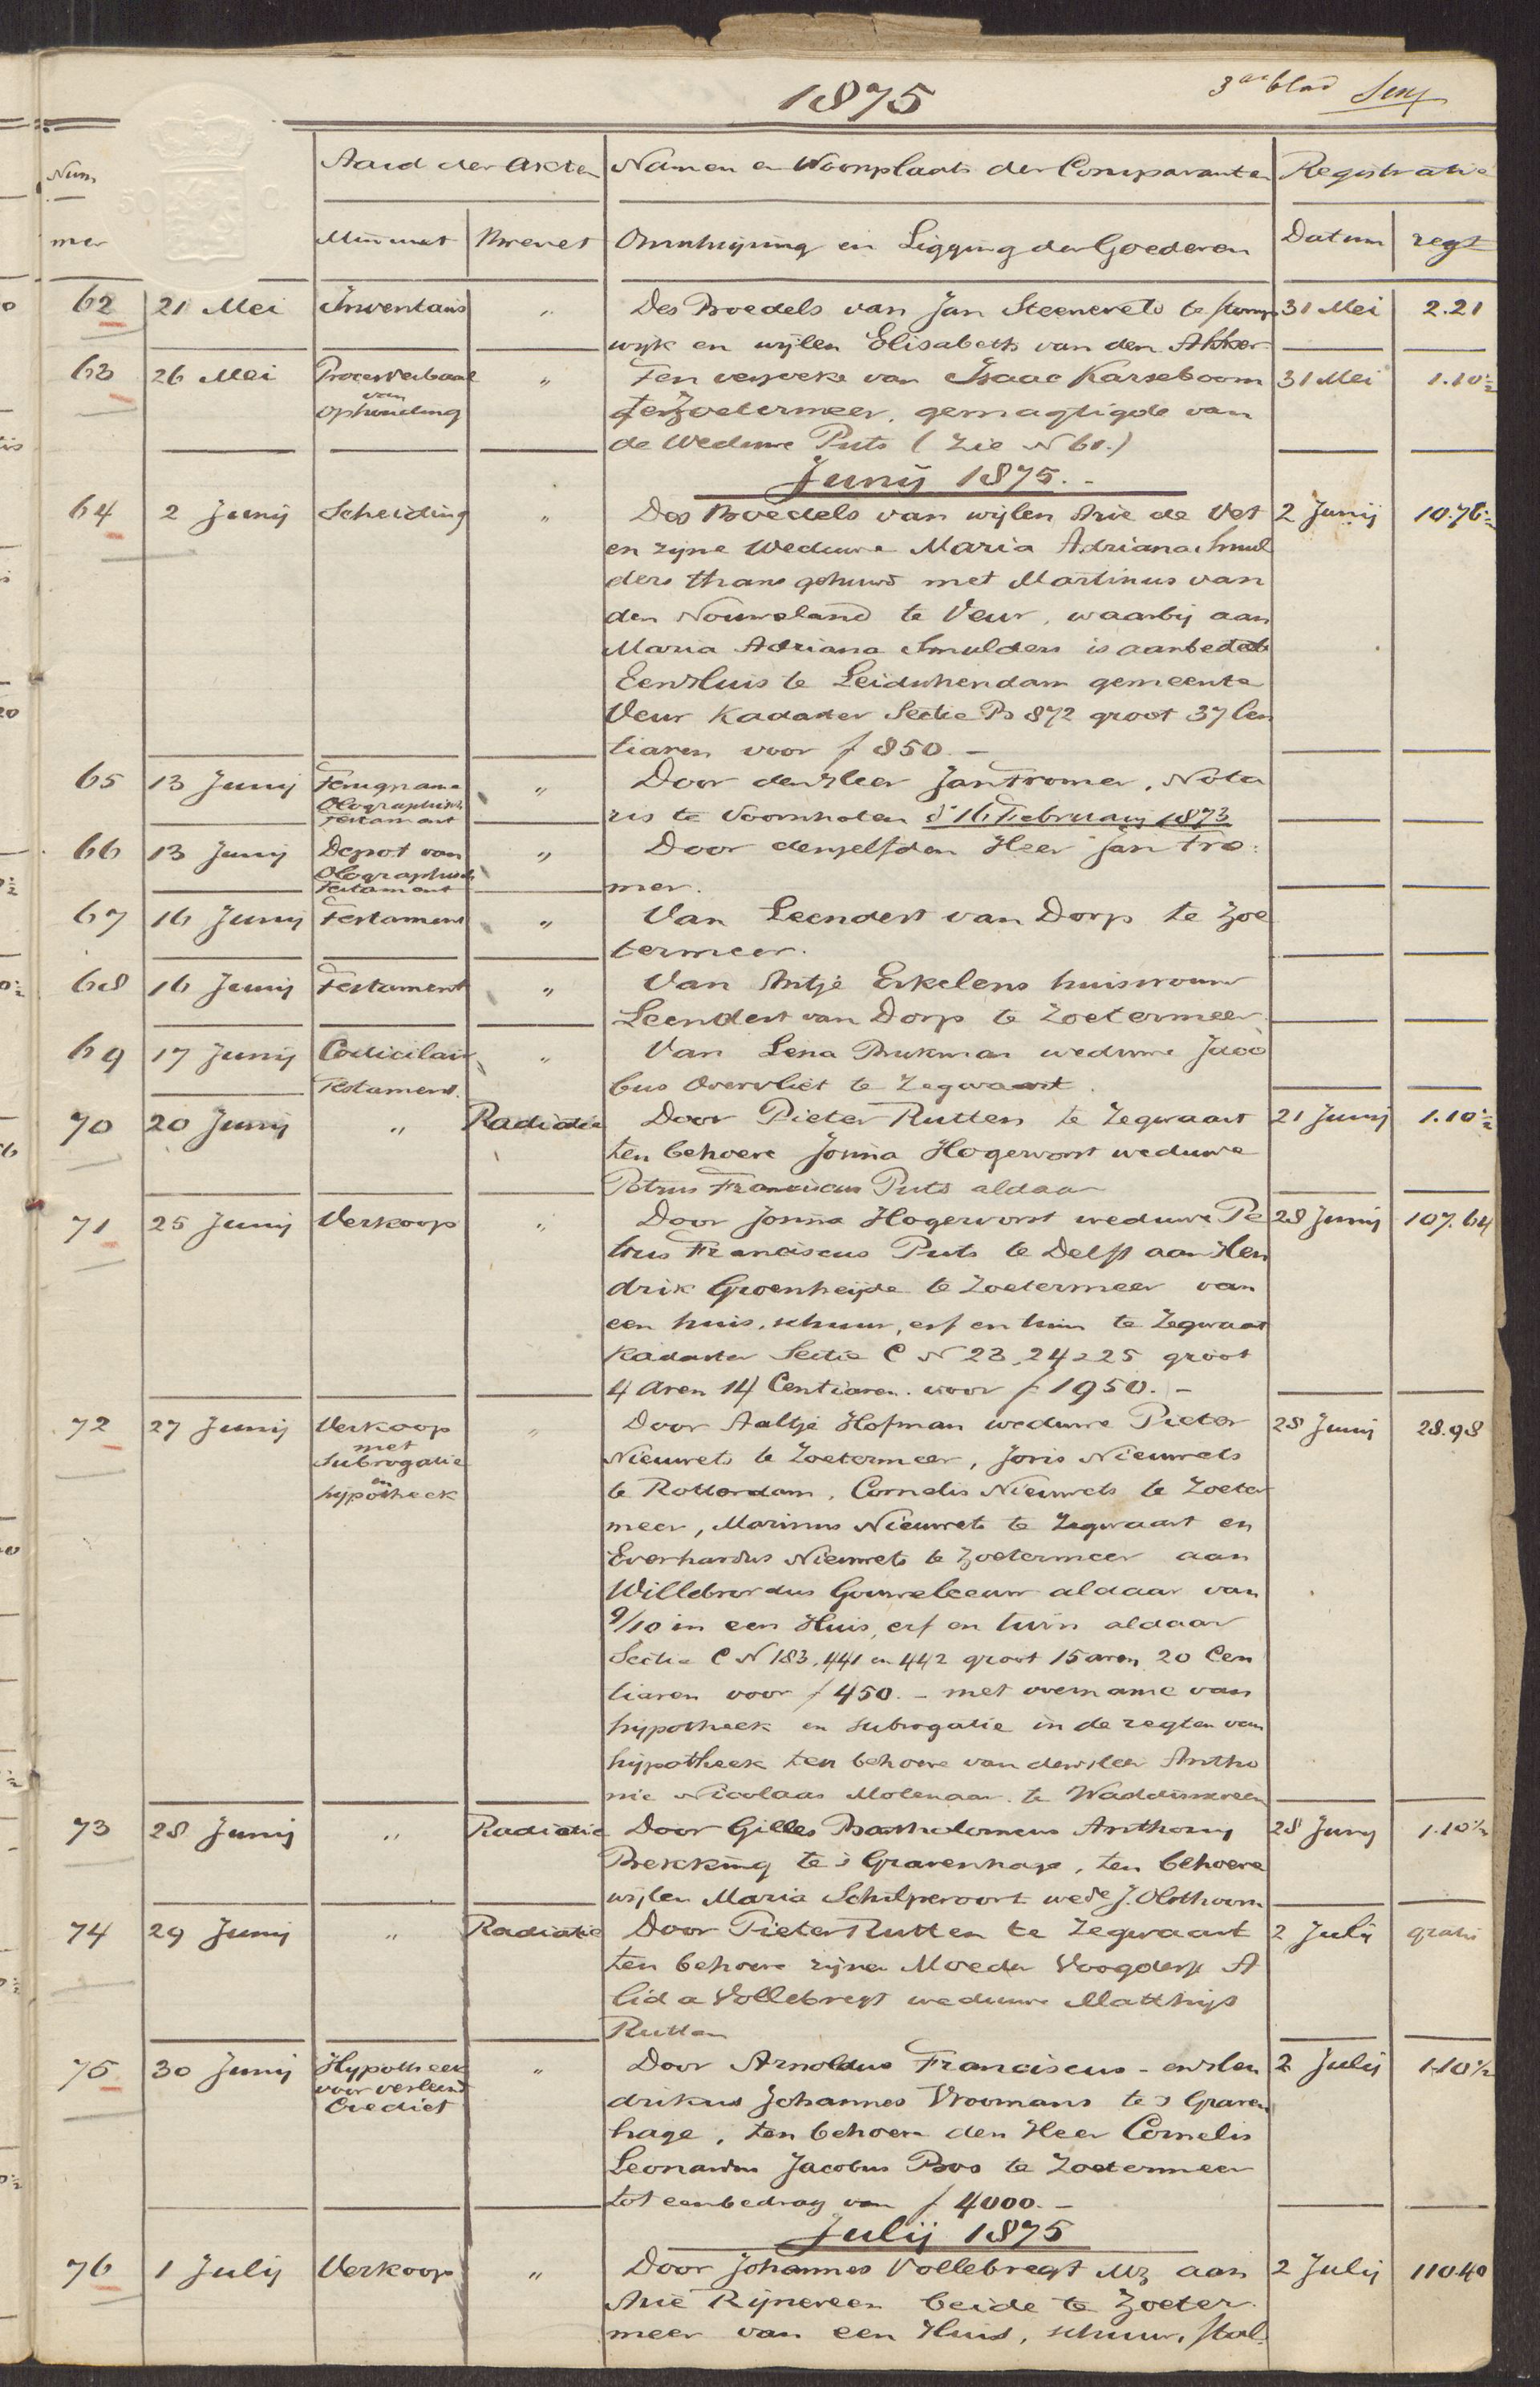 1875
3de blad
Num
mer
Aard der Akten
Namen en Woonplaats der Comparanten
Registratie
Minuut
Brevet
Omschrijving en Ligging der Goederen
Datum
regt
62 21 Mei Inventaris " Des Boedels van Jan Steenevelt te Stomp 31 Mei 2.21
wijk en wijlen Elisabeth van den Akker
63 26 Mei Procesverbaal " Ten verzoeke van Isaac Karseboom 31 Mei 1.10½
van
ophouding te Zoetermeer, gemagtigde van
de Weduwe Puts (Zie N 60.)
Junij 1875.-
64 2 Junij Scheiding " Des Boedels van wijlen Arie de Vet 2 Junij 10.76½
en zijne Weduwe Maria Adriana Smul
ders thans gehuwd met Martinus van
den Nouweland te Veur, waarbij aan
Maria Adriana Smulders is aanbedeeld
Een Huis te Leidschendam gemeente
Veur Kadaster Sectie B 872 groot 37 Cen
tiaren voor f 850.-
65 13 Junij Terugname " Door den Heer Jan Tromer, Nota
Olographisch
Testament ris te Voorscholen d° 16 Februarij 1873
66 13 Junij Depot van " Door denzelfden Heer Jan Tro:
Olographisch
Testament mer.
67 16 Junij Testament " Van Leendert van Dorp te Zoe
termeer.
68 16 Junij Testament " Van Antje Eskelens huisvrouw
Leendert van Dorp te Zoetermeer.
69 17 Junij Codicilair " Van Lena Brukman weduwe Jaco
Testament. bus Overvliet te Zegwaart.
70 20 Junij " Radiatie Door Pieter Rutten te Zegwaart 21 Junij 1.10½
ten behoeve Jonna Hogervorst weduwe
Petrus Franciscus Puts aldaar
71 25 Junij Verkoop " Door Jonna Hogervorst weduwe Pe 28 Junij 107.64
trus Franciscus Puts te Delft aan Hen
drik Groenheijde te Zoetermeer van
een huis, schuur, erf en tuin te Zegwaart
Kadaster Sectie C N 23, 24 & 25 groot
4 Aren 14 Centiaren voor f 1950.-
72 27 Junij Verkoop " Door Aaltje Hofman weduwe Pieter 28 Junij 28.98
met
Subrogatie Nieuwets te Zoetermeer, Joris Nieuwets
en
hypotheek te Rotterdam, Cornelis Nieuwets te Zoeter
meer, Marinus Nieuwets te Zegwaart en
Everhardus Nieuwets te Zoetermeer aan
Willebrordus Gouweleeuw aldaar van
9/10 in een Huis, erf en tuin aldaar
Sectie C N 183, 441 en 442 groot 15 aren 20 Cen
tiaren voor f 450.- met overname van
hypotheek en subrogatie in de regten van
hypotheek ten behoeve van den Heer Antho
nie Nicolaas Molenaar te Waddinxveen
73 28 Junij " Radiatie Door Gilles Bartholomeus Anthony 28 Junij 1.10½
Brekking te 's Gravenhage, ten behoeve
wijlen Maria Schilperoort wede J. Olsthoorn
74 29 Junij " Radiatie Door Pieter Rutten te Zegwaart 2 Julij gratis
ten behoeve zijner Moeder Voogdesse A
lida Vollebregt weduwe Matthijs
Rutten
75 30 Junij Hypotheek " Door Arnoldus Franciscus - en Hen 2 Julij 1.10½
voor verleend
Crediet drikus Johannes Vroomans te 's Graven
hage, ten behoeve den Heer Cornelis
Leonardus Jacobus Bos te Zoetermeer
tot een bedrag van f 4000.-
Julij 1875
76 1 Julij Verkoop " Door Johannes Vollebregt Mz aan 2 Julij 110.40
Arie Rijneveen beide te Zoeter
meer van een Huis, schuur, stal,